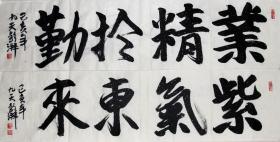 業精扵勤
己亥年
紫氣東來
己亥年